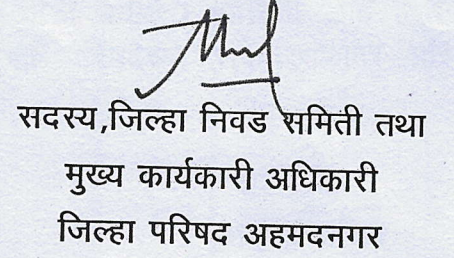 सदस्य,जिल्हा निवड समिती तथा
मुख्य कार्यकारी अधिकारी
जिल्हा परिषद अहमदनगर